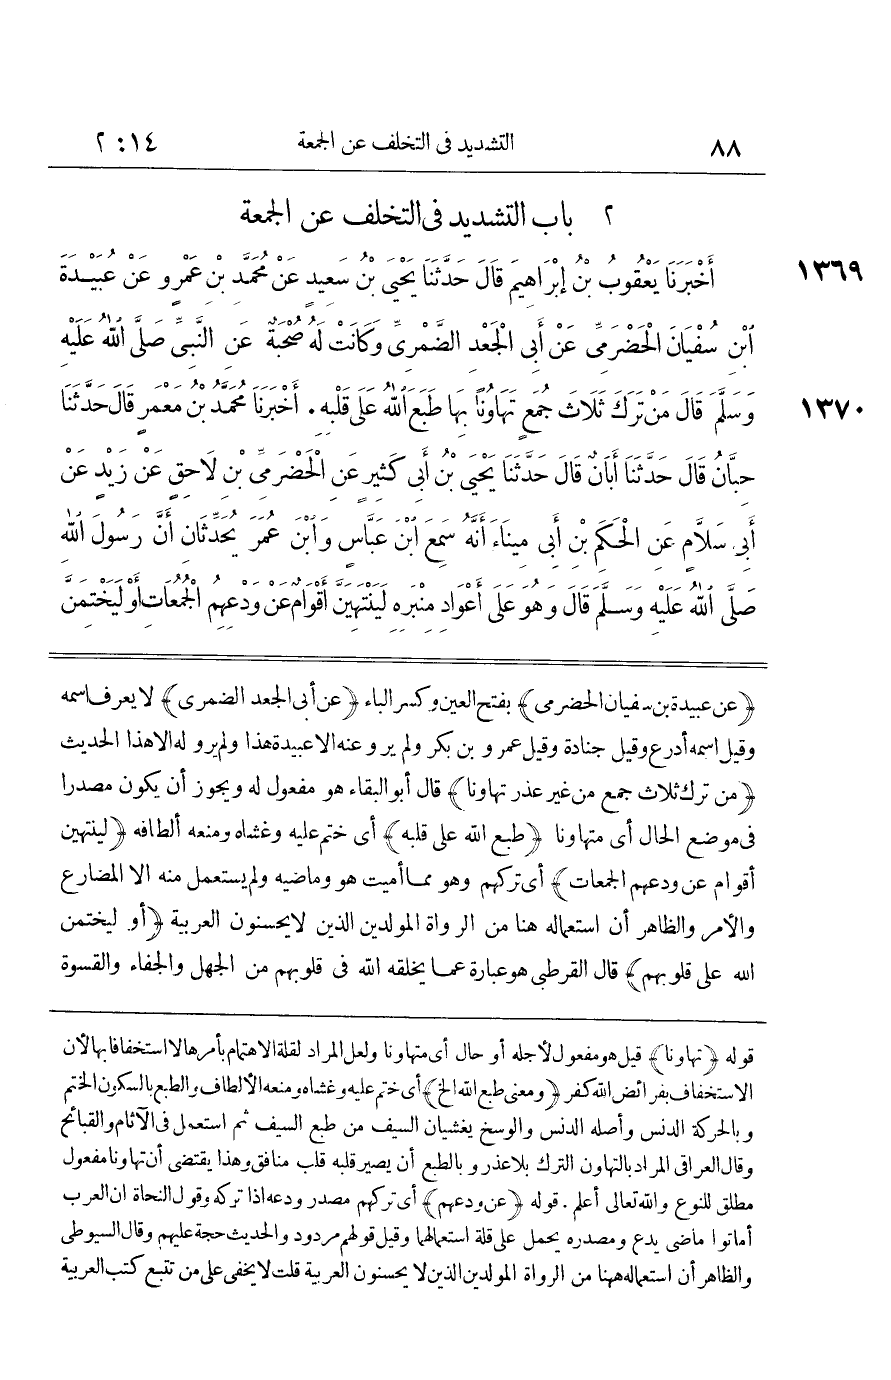 ٨٨ التشديد فى التخلف عن الجمعة ١٤ : ٢
٢ باب التشديد فى التخلف عن الجمعة
١٣٦٩ أَخْبَرَنَا يَعْقُوبُ بْنُ إِبْرَاهِيمَ قَالَ حَدَّثَنَا يَحْيَى بْنُ سَعِيدٍ عَنْ مُحَمَّدِ بْنِ عَمْرٍو عَنْ عُبَيْدَةَ
ابْنِ سُفْيَانَ الْحَضْرَمِىِّ عَنْ أَبِى الْجَعْدِ الضَّمْرِىِّ وَكَانَتْ لَهُ صُحْبَةٌ عَنِ النَّبِىِّ صَلَّى اللهُ عَلَيْهِ
١٣٧٠ وَسَلَّمَ قَالَ مَنْ تَرَكَ ثَلَاثَ جُمَعٍ تَهَاوُنًا بِهَا طَبَعَ اللهُ عَلَى قَلْبِهِ . أَخْبَرَنَا مُحَمَّدُ بْنُ مَعْمَرٍ قَالَ حَدَّثَنَا
حِبَّانُ قَالَ حَدَّثَنَا أَبَانٌ قَالَ حَدَّثَنَا يَحْيَى بْنُ أَبِى كَثِيرٍ عَنِ الْحَضْرَمِىِّ بْنِ لَاحِقٍ عَنْ زَيْدٍ عَنْ
أَبِى سَلَّامٍ عَنِ الْحَكَمِ بْنِ أَبِى مِينَاءَ أَنَّهُ سَمِعَ ابْنَ عَبَّاسٍ وَابْنَ عُمَرَ يُحَدِّثَانِ أَنَّ رَسُولَ اللهِ
صَلَّى اللهُ عَلَيْهِ وَسَلَّمَ قَالَ وَهُوَ عَلَى أَعْوَادِ مِنْبَرِهِ لَيَنْتَهِيَنَّ أَقْوَامٌ عَنْ وَدْعِهِمُ الْجُمُعَاتِ أَوْ لَيَخْتِمَنَّ
﴿عن عبيدة بن سفيان الحضرمى﴾ بفتح العين وكسر الباء ﴿عن أبى الجعد الضمرى﴾ لا يعرف اسمه
وقيل اسمه أدرع وقيل جنادة وقيل عمرو بن بكر ولم يرو عنه الا عبيدة هذا ولم يرو له الا هذا الحديث
﴿من ترك ثلاث جمع من غير عذر تهاونا﴾ قال أبو البقاء هو مفعول له ويجوز أن يكون مصدرا
فى موضع الحال أى متهاونا ﴿طبع الله على قلبه﴾ أى ختم عليه وغشاه ومنعه ألطافه ﴿لينتهين
أقوام عن ودعهم الجمعات﴾ أى تركهم وهو مما أميت هو وماضيه ولم يستعمل منه الا المضارع
والأمر والظاهر أن استعماله هنا من الرواة المولدين الذين لا يحسنون العربية ﴿أو ليختمن
الله على قلوبهم﴾ قال القرطبى هو عبارة عما يخلقه الله فى قلوبهم من الجهل والجفاء والقسوة
قوله ﴿تهاونا﴾ قيل هو مفعول لأجله أو حال أى متهاونا ولعل المراد لقلة الاهتمام بأمرها لا استخفافا بها لأن
الاستخفاف بفرائض الله كفر ﴿ومعنى طبع الله الخ﴾ أى ختم عليه وغشاه ومنعه الألطاف والطبع بالسكون الختم
وبالحركة الدنس وأصله الدنس والوسخ يغشيان السيف من طبع السيف ثم استعمل فى الآثام والقبائح
وقال العراقى المراد بالتهاون الترك بلا عذر وبالطبع أن يصير قلبه قلب منافق وهذا يقتضى أن تهاونا مفعول
مطلق للنوع والله تعالى أعلم . قوله ﴿عن ودعهم﴾ أى تركهم مصدر ودعه اذا تركه وقول النحاة ان العرب
أماتوا ماضى يدع ومصدره يحمل على قلة استعمالها وقيل قولهم مردود والحديث حجة عليهم وقال السيوطى
والظاهر أن استعماله ههنا من الرواة المولدين الذين لا يحسنون العربية قلت لا يخفى على من تتبع كتب العربية